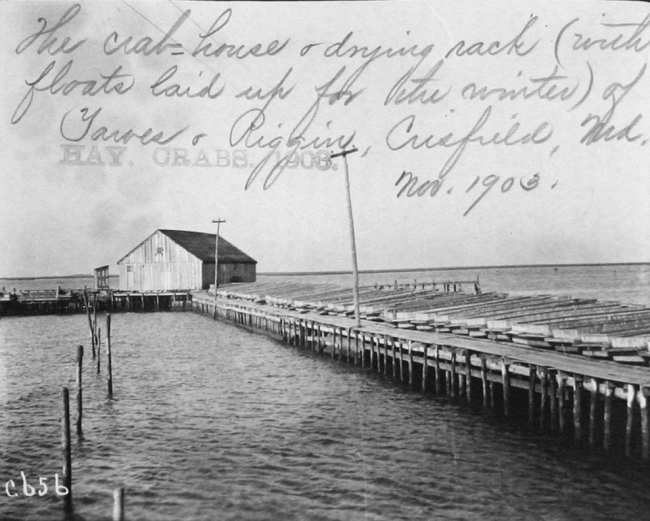 The crab-house & drying rack (with
floats laid up for the winter) of
Tawes & Riggin, Crisfield, Md.
HAY. CRABS. 1903.
Nov. 1903.
c656